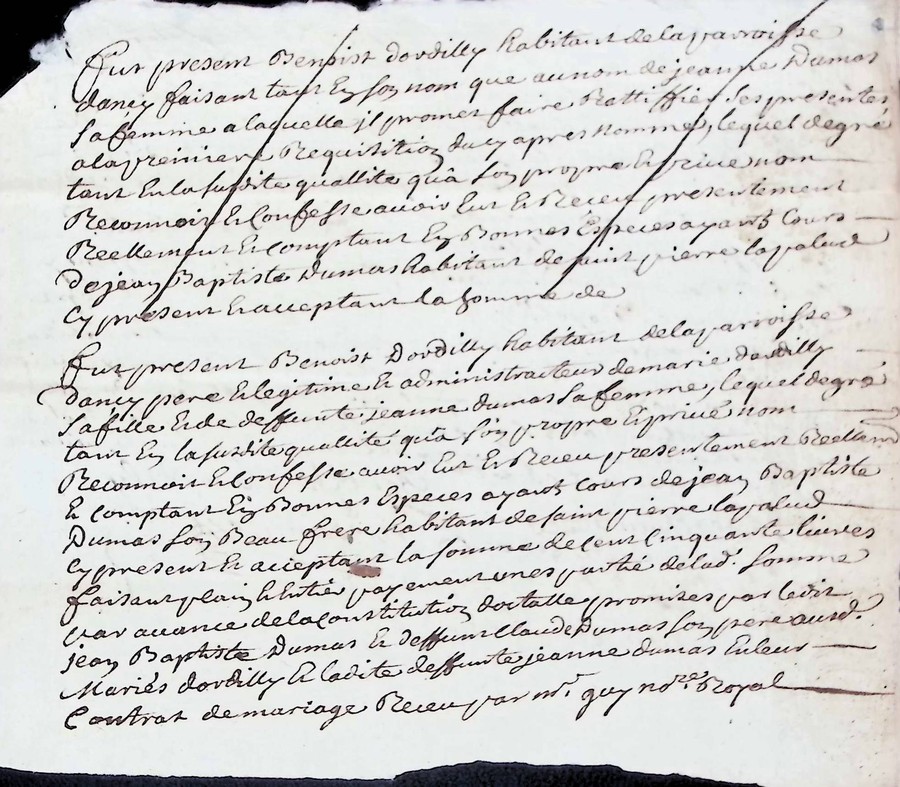 Fut present Benoist Dordilly habitant de la parroisse
dancy faisant tant En son nom que au nom de jeanne Dumas
sa femme a laquelle jl promet faire Rattiffier ses presentes
a la premiere Requisition du cy apres nommé, lequel de gré
tant En la susdite quallité quà son propre Et privé nom
Reconnoit Et Confesse avoir Eut Et Receu presentement
Reellement Et comptant En Bonnes Especes ayant Cours
De jean Baptiste Dumas habitant de saint pierre la palud
Cy present Et acceptant la somme de
Fut present Benoist Dordilly habitant de la parroisse
Dancy pere Et legitime Et administrateur de marie dordilly
sa fille Et de deffunte jeanne dumas sa femme, lequel de gré
tant En la susdite quallité qu'a son propre Et privé nom
Reconnoit Et Confesse avoir Eut Et Receu presentement Reellemt
Et comptant En Bonnes Especes ayant Cours de jean Baptiste
Dumas son Beau frere habitant de saint pierre la palud
Cy present Et acceptant la somme de Cent Cinquante livres
faisant plain Et Entié payement unes partie de lad. somme
par avance de la constitution dotalle promises par ledit
jean Baptiste Dumas Et deffunt Claude Dumas son pere ausd.
Mariés dordilly Et ladite deffunte jeanne dumas En leur
Contrat de mariage Receu par mr. guy nore. Royal